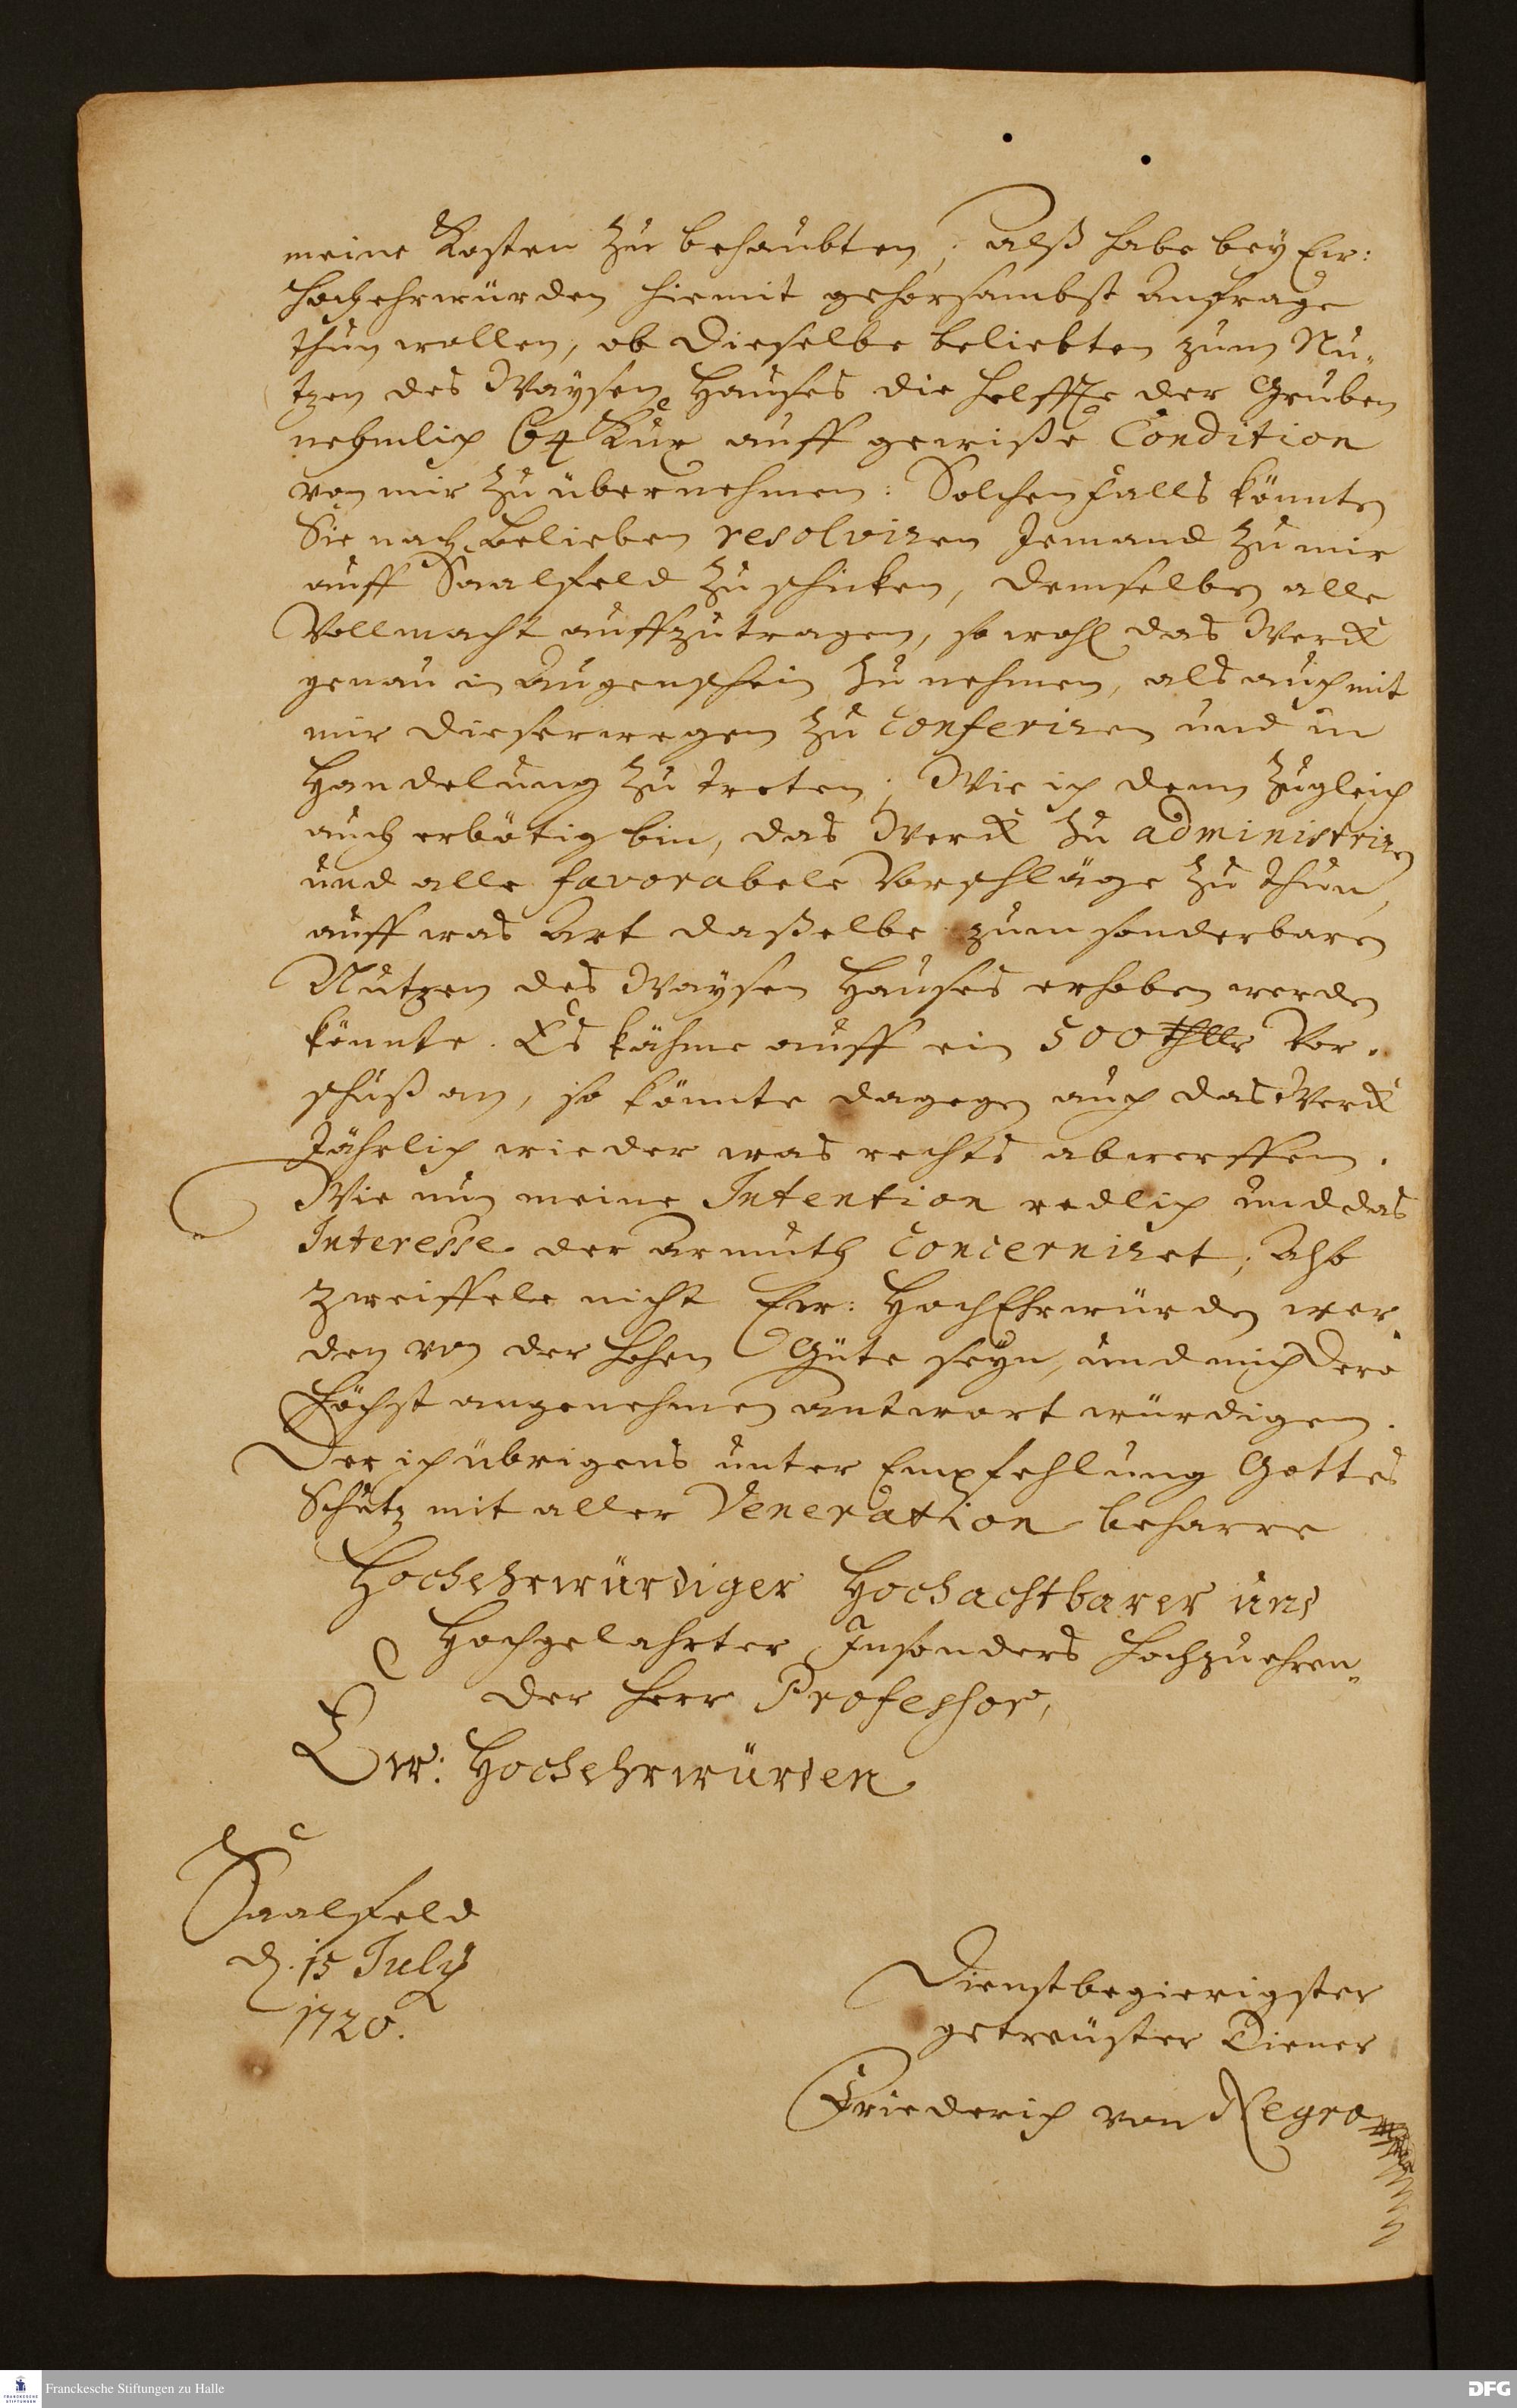 meine Kosten zu behaubten; alß habe bey Ew:
Hochehrwürden hiemit gehorsambst Anfrage
thun wollen, ob dieselbe beliebten zum Nu-
tzen des Waysen Hauses die helffte der Gruben
nehmlich 64 Kux auff gewiße Condition
von mir zu übernehmen: Solchenfalls könnten
Sie nach belieben resolviren Jemand zu mir
auff Saalfeld zu schicken, demselben alle
Vollmacht auffzutragen, so wohl das Werck
genau in Augenschein zu nehmen, als auch mit
mir dieserwegen zu conferiren und in
Handelung zu treten; Wie ich denn zugleich
auch erbötig bin, das Werck zu administriren
und alle favorabele Vorschläge zu thun,
auff was Art daßelbe zum sonderbaren
Nutzen des Waysen Hauses erhoben werden
könnte. Es kähme auff ein 500 thlr Vor-
schuß an, so könnte dagegen auch das Werck
Jährlich wieder was rechts abwerffen.
Wie nun meine Intention redlich und das
Interesse der Armuth concerniret; Also
zweiffele nicht Ew: HochEhrwürden wer-
den von der hohen Güte seyn, und mich Dero
höchst angenehmen Antwort würdigen.
Der ich übrigens unter Empfehlung Gottes
Schutz mit aller Veneration beharre
Hochehrwürdiger Hochachtbarer und
Hochgelahrter Insonders Hochzuehren-
der Herr Professor,
Ew: Hochehrwürden
Saalfeld
d. 15 July
1720.
Dienstbegierigster
getreuster Diener
Friederich von Negro
Franckesche Stiftungen zu Halle
DFG